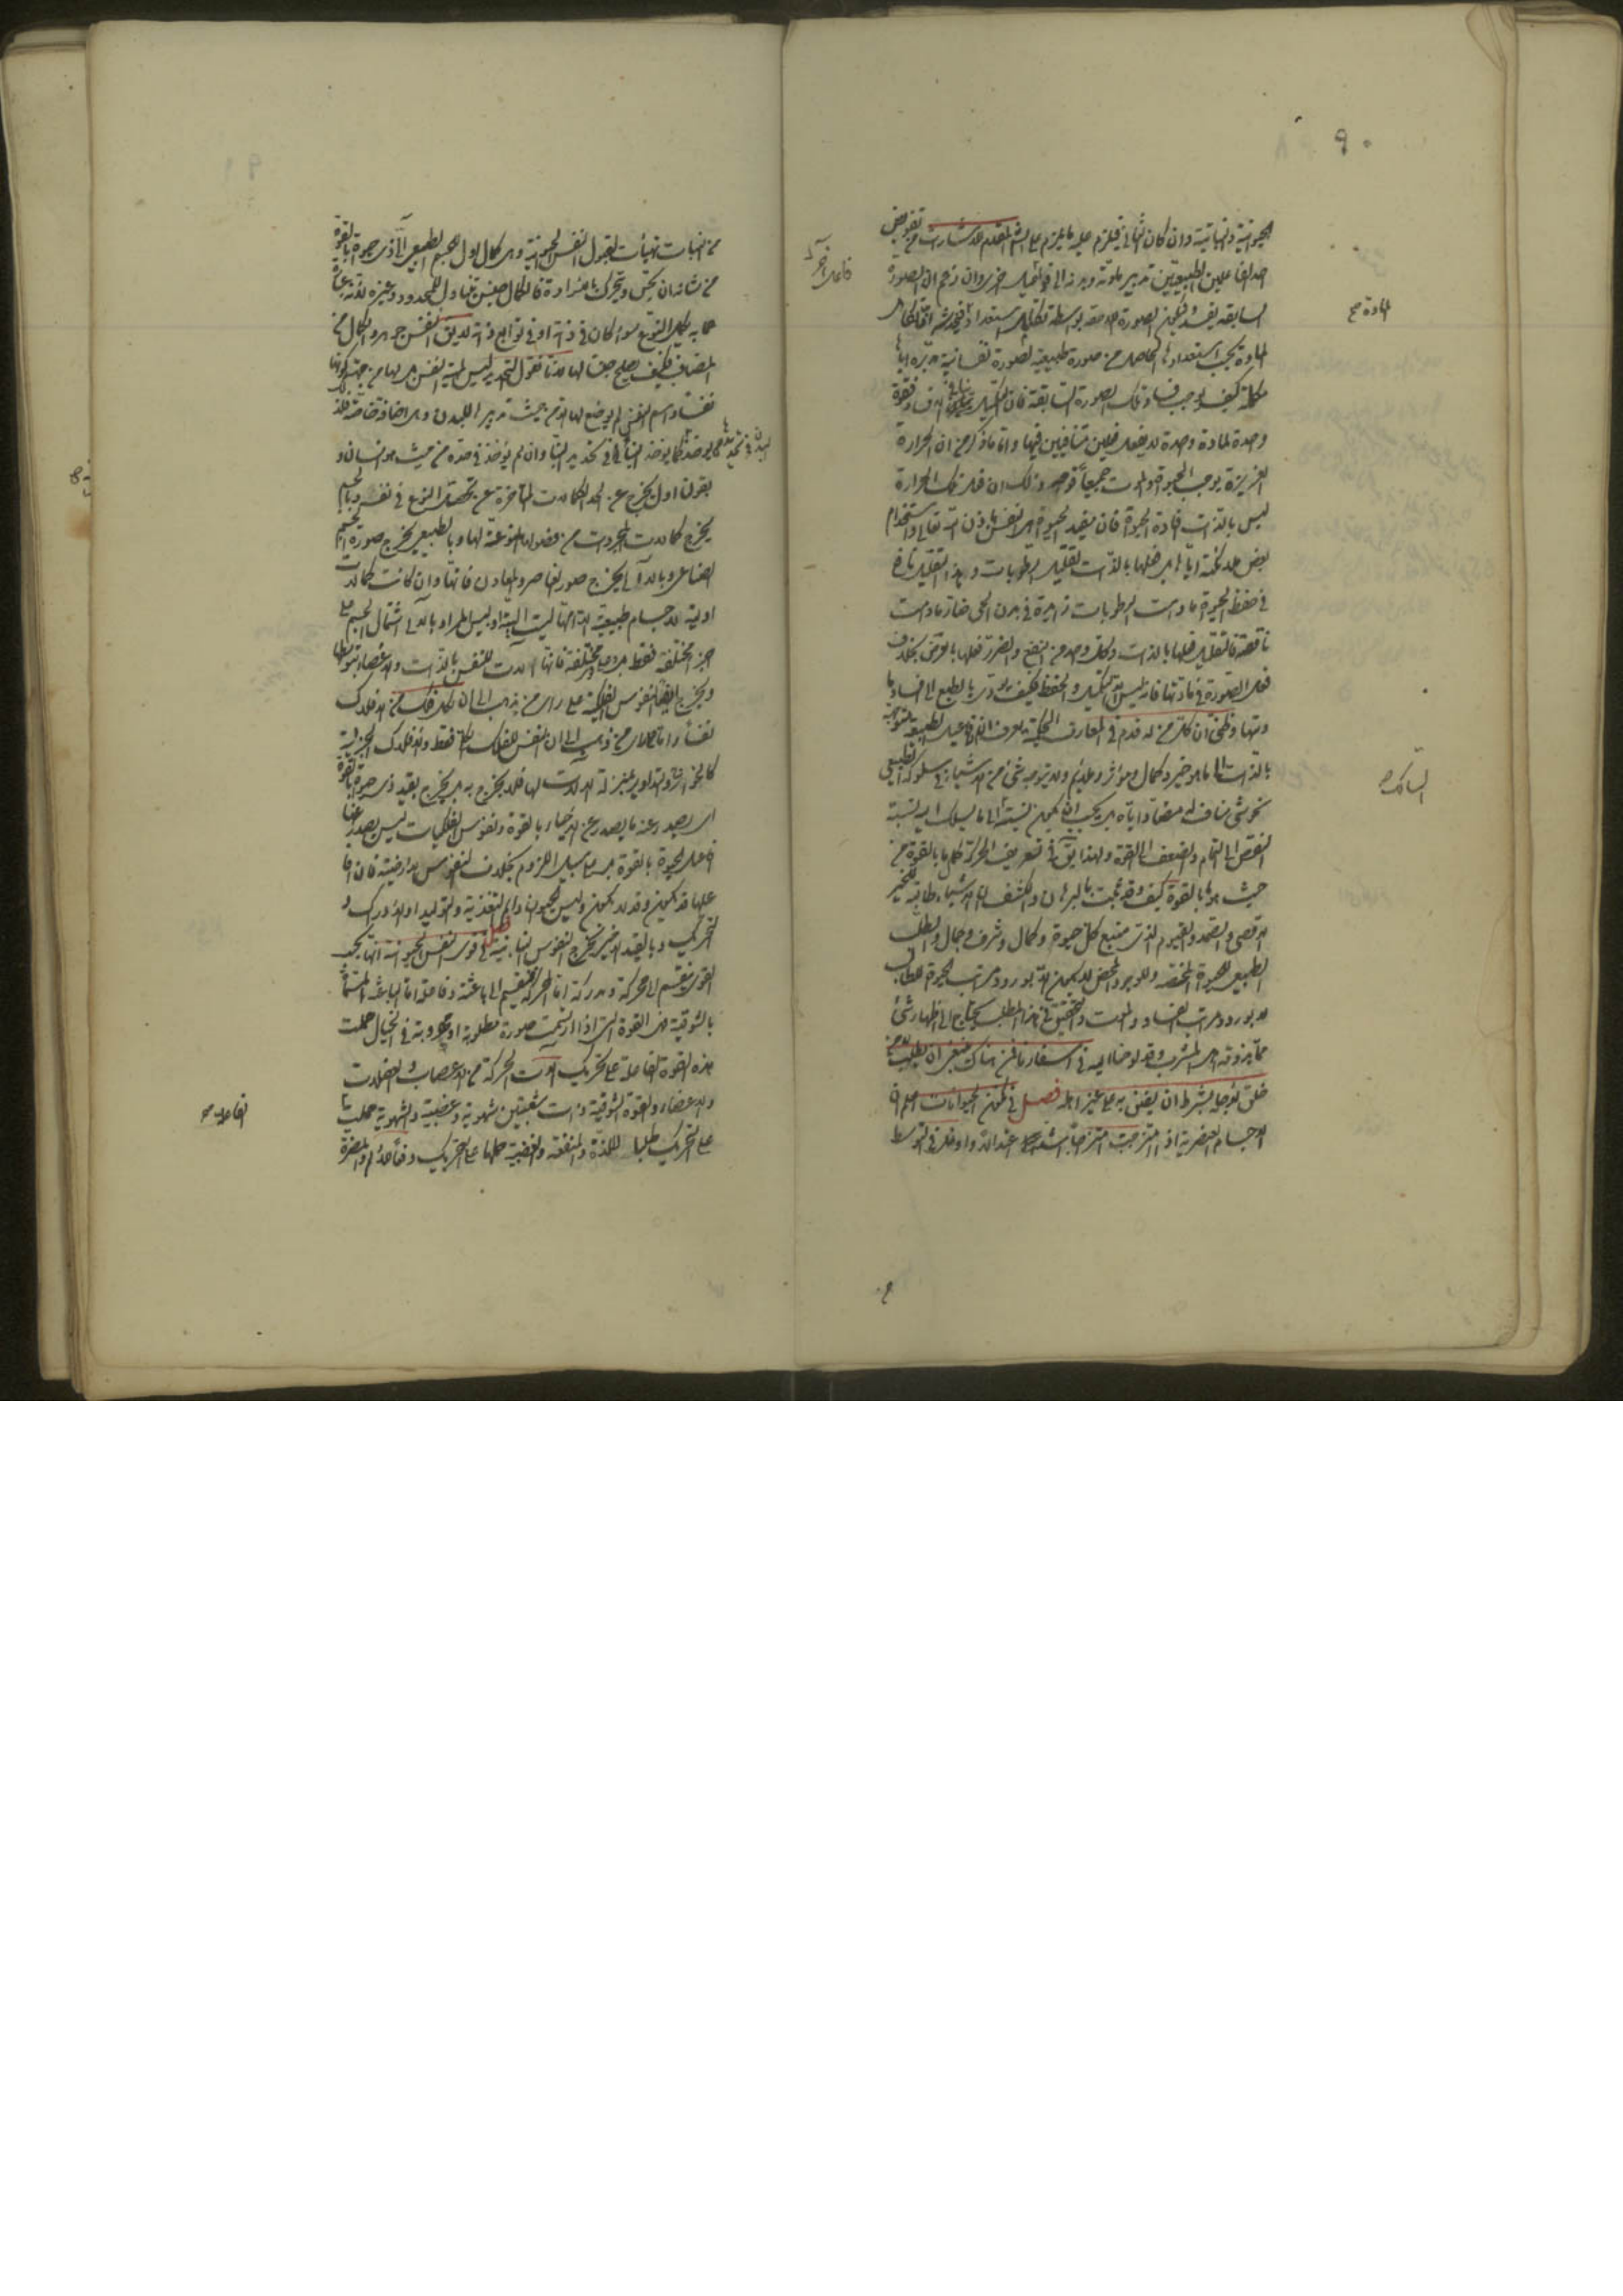 ٩٠
الحيوانية والنباتية وان كان الثانى فيلزم عليه ما يلزم على الشق المقدم من تفويض
احد الفاعلين الطبيعيين تدبير مادته
فاعل آخر
السابقة يفسد فيكون الصورة اللاحقة بواسطة
المادة صح
المادة بحسب استعدادها الحاصل من صورة طبيعية لصورة نفسانية مدبرة اياها
مكملة كيف يوجب فساد تلك الصورة السابقة فان التكميل ينافى الافساد وقوة
واحدة لمادة واحدة لا يفعل فعلين متنافيين فيها واما ما ذكر من ان الحرارة
الغريزية يوجب الحيوة والموت جميعا فوجهه ذلك ان فعل تلك الحرارة
ليس بالذات افادة الحيوة فان مفيد الحيوة هى النفس باذن الله تعالى واستخدام
بعض ملائكته اياها بل فعلها بالذات تقليل الرطوبات وهذا التقليل نافع
فى حفظ الحيوة ما دامت الرطوبات زايدة فى بدن الحى ضار ما دامت
ناقصة فالتقليل فعلها بالذات وكل واحد من النفع والضرر فعلها بالعرض بخلاف
فعل الصورة فى مادتها فانه ليس الا التكميل والحفظ فكيف يؤدى بالطبع الى افساد
مادتها وظنى ان كل من له قدم فى المعارف الحكمية يعرف ان
بالذات الى ما هو خير وكمال ومؤثر وملايم ولا يتوجه شئ من الاشياء فى سلوكه الطبيعى
السالك
نحو شئ مناف له مضاد اياه بل يجب ان يكون نسبته الى ما يسلك اليه نسبة
النقص الى التمام والضعف الى القوة ولهذا يق فى تعريف الحركة كمال ما بالقوة من
حيث هو بالقوة كيف وقد ثبت بالبرهان والكشف ان الاشياء طالبة للخير
الاقصى والصمد والقيوم الذى منبع كل حيوة وكمال وشرف وجمال والطلب
الطبيعى للحيوة المحضة والوجود المحض لا يكون الا بورود مراتب الحيوة للطالب
لا بورود مراتب الفساد والموت والتحقيق فى هذا المطلب يحتاج الى اظهار شئ
مما يذوقه اهل المشرب وقد لوحنا اليه فى اسفارنا فمن هناك ينبغى ان يطلبه من
خلق لاجله بشرط ان يضن به على غير اهله فصل فى تكون الحيوانات اعلم ان
الاجسام العنصرية اذا امتزجت امتزاجا اشد اعتدالا واوغل فى التوسط
من النبات تهيأت لقبول النفس الحيوانية وهى كمال اول لجسم طبيعى آلى ذى حيوة بالقوة
من شانه ان يحس ويتحرك بالارادة فالكمال جنس يتناول المحدود وغيره لانه عبارة
عما به يكمل النوع سواء كان فى ذاته او فى توابع ذاته لا يق النفس جوهر والكمال من
المضاف فكيف يصلح جنسا لها لانا نقول التحديد ليس لماهية النفس بل لها من جهة كونها
نفسا واسم النفس لم يوضع لها الا من حيث تدبيرها للبدن وهى اضافة خاصة فلذلك
البدن فى تحديدها كما يؤخذ البناء فى تحديد البناء وان لم يؤخذ فى حده من حيث هو انسان و
بقولنا اول يخرج عن الحد الكمالات المتأخرة عن تحصل النوع فى نفسه وبالجسم
يخرج كمالات المجردات من فصولها المنوعة لها وبالطبيعى يخرج صورة الجسم
الصناعى وبالآلى يخرج صور العناصر والمعادن فانها وان كانت كمالات
اولية لاجسام طبيعية الا انها ليست آلية اذ ليس المراد بالآلى اشتمال الجسم على
اجزاء مختلفة فقط بل وقوى مختلفة فانها آلات للنفس بالذات والاعضاء بتوسطها
ويخرج ايضا النفوس الفلكية على راى من يذهب الى ان لكل فلك من الافلاك
نفسا واما على راى من ذهب الى ان النفس للفلك الكلى فقط والافلاك الجزئية
كالخوارج والتداوير بمنزلة الآلات لها فلا يخرج به بل يخرج بقيد ذى حيوة بالقوة
اى يصدر عنه ما يصدر عن الاحياء بالقوة ونفوس الفلكيات ليس يصدر عنها
افعال الحيوة بالقوة بل على سبيل اللزوم بخلاف النفوس الارضية فان
فعلها قد يكون وقد لا يكون وليس الحيوان دايم التغذية والتوليد او الادراك و
التحريك وبالقيد الاخير يخرج النفوس النباتية فصل فى قوى النفس الحيوانية انها بحسب
القوى ينقسم الى محركة ومدركة اما المحركة فينقسم الى باعثة وفاعلة اما الباعثة المسماة
بالشوقية هى القوة التى اذا ارتسمت صورة مطلوبة او مهروبة فى الخيال حملت
هذه القوة الفاعلة على تحريك آلات الحركة من الاعصاب والعضلات
الفاعلة صح
والاعضاء والقوة الشوقية ذات شعبتين شهوية وغضبية والشهوية حملها
على التحريك طلبا للذة والمنفعة والغضبية حملها على التحريك دفعا للالم والمضرة